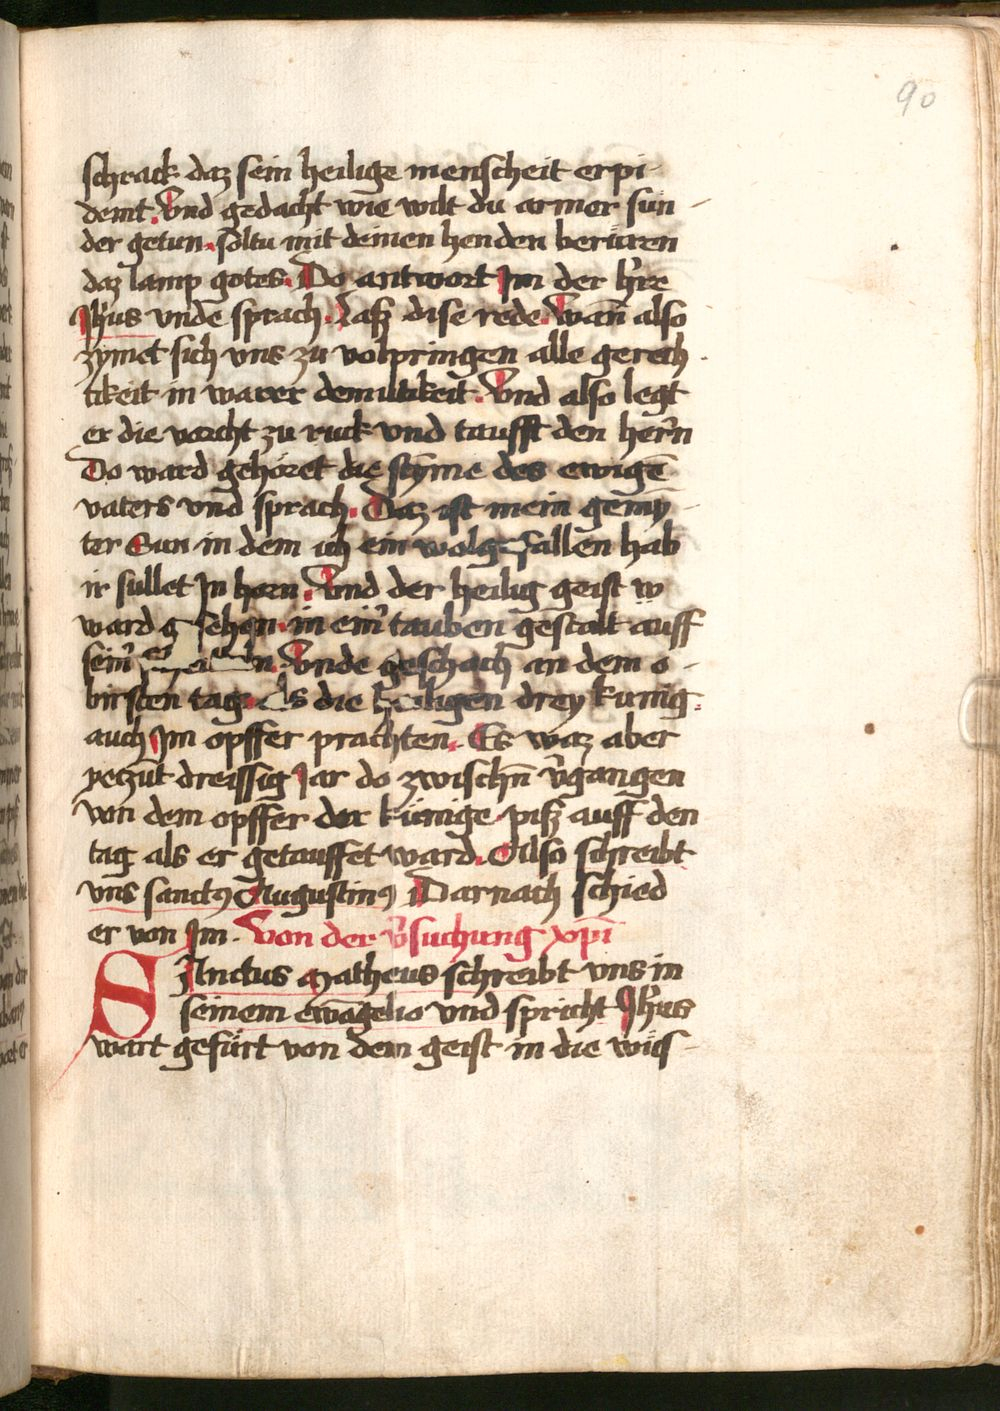 90
schrack daz sein heilige menscheit erpi-
demt. Vnd gedacht wie wilt du armer sün-
der getun. soltu mit deinen henden berüren
daz lamp gotes. Do antwort Jm der h'rre
Jh'us vnde sprach. Laß dise rede. Wan̄ also
zymet sich vns zu volpringen alle gerech-
tikeit in warer demutikeit. Vnd also legt
er die vorcht zu ruck vnd taufft den her'n
Do ward gehöret die styme des ewigē
vaters vnd sprach. Daz ist mein gemÿ-
ter Sun in dem ich ein wolgefallen hab
ir sullet Jn horn. Vnd der heilig geist w
ward gesehen. in eim' tauben gestalt auff
seim' Vnde geschach an dem o-
birsten tag. Als die heiligen drey kunig.
auch Jm opffer prachten. Es waz aber
yetzūt dreissig Jar do zwischn̄ v'gangen
von dem opffer der künige piß auff den
tag als er getauffet ward. Also schreibt
vns sanctꝰ Augustinꝰ Darnach schied
er von Jm. Von der v'suchung xp̄i
SAnctus Matheus schreibt vns in
seinem ewāgelio vnd spricht Jh'us
wart gefürt von dem geist in die wüs-